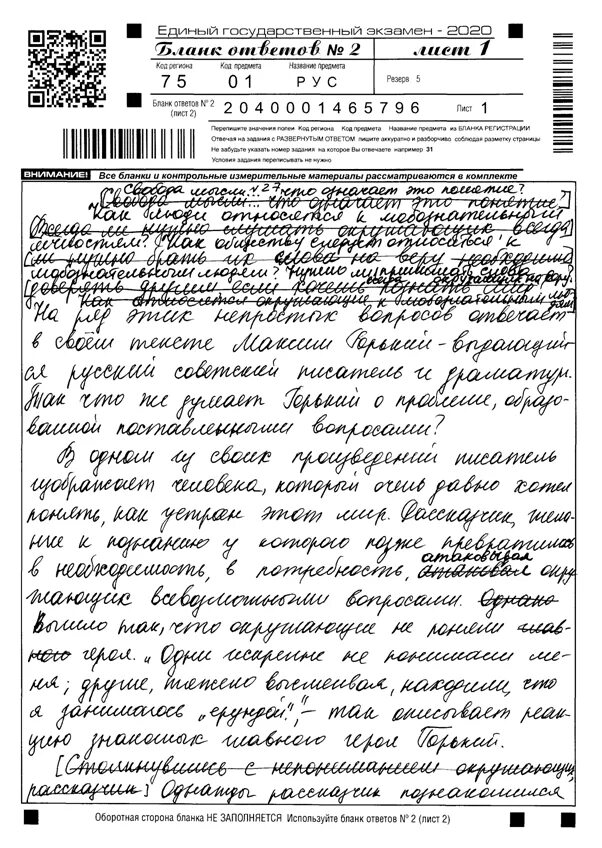 Единый государственный экзамен - 2020
Бланк ответов № 2 лист 1
Код региона Код предмета Название предмета
75 01 РУС Резерв 5
Бланк ответов № 2 (лист 2) 2040001465796 Лист 1
Перепишите значения полей Код региона Код предмета Название предмета из БЛАНКА РЕГИСТРАЦИИ
Отвечая на задания с РАЗВЕРНУТЫМ ОТВЕТОМ пишите аккуратно и разборчиво соблюдая разметку страницы
Не забудьте указать номер задания на которое Вы отвечаете например 31
Условия задания переписывать не нужно
ВНИМАНИЕ! Все бланки и контрольные измерительные материалы рассматриваются в комплекте
27
Свобода мысли... что означает это понятие?
[Свобода мысли... что означает это понятие?
Как люди относятся к любознательным
Всегда ли нужно слушать окружающих всегда
личностям? Как обществу следует относиться к
ли нужно брать их слова на веру необходимо
любознательным людям? Нужно ли принимать слова
всегда окружающих на веру.
доверять другим если хочешь познать мир
Как относятся окружающие к любознательным людям]
На ряд этих непростых вопросов отвечает
в своём тексте Максим Горький - выдающий-
ся русский советский писатель и драматург.
Так что же думает Горький о проблеме, образо-
ванной поставленными вопросами?
В одном из своих произведений писатель
изображает человека, который очень давно хотел
понять, как устроен этот мир. Рассказчик, жела-
ние к познанию у которого позже превратилось
в необходимость, в потребность, атаковывал окру-
жающих всевозможными вопросами. Однако
Вышло так, что окружающие не поняли глав-
ного героя. „Одни искренне не понимали ме-
ня; другие, тяжело высмеивая, находили, что
я занимаюсь „ерундой"," - так описывает реак-
цию знакомых главного героя Горький.
[Столкнувшись с непониманием окружающих,
рассказчик] Однажды рассказчик познакомился
Оборотная сторона бланка НЕ ЗАПОЛНЯЕТСЯ Используйте бланк ответов № 2 (лист 2)